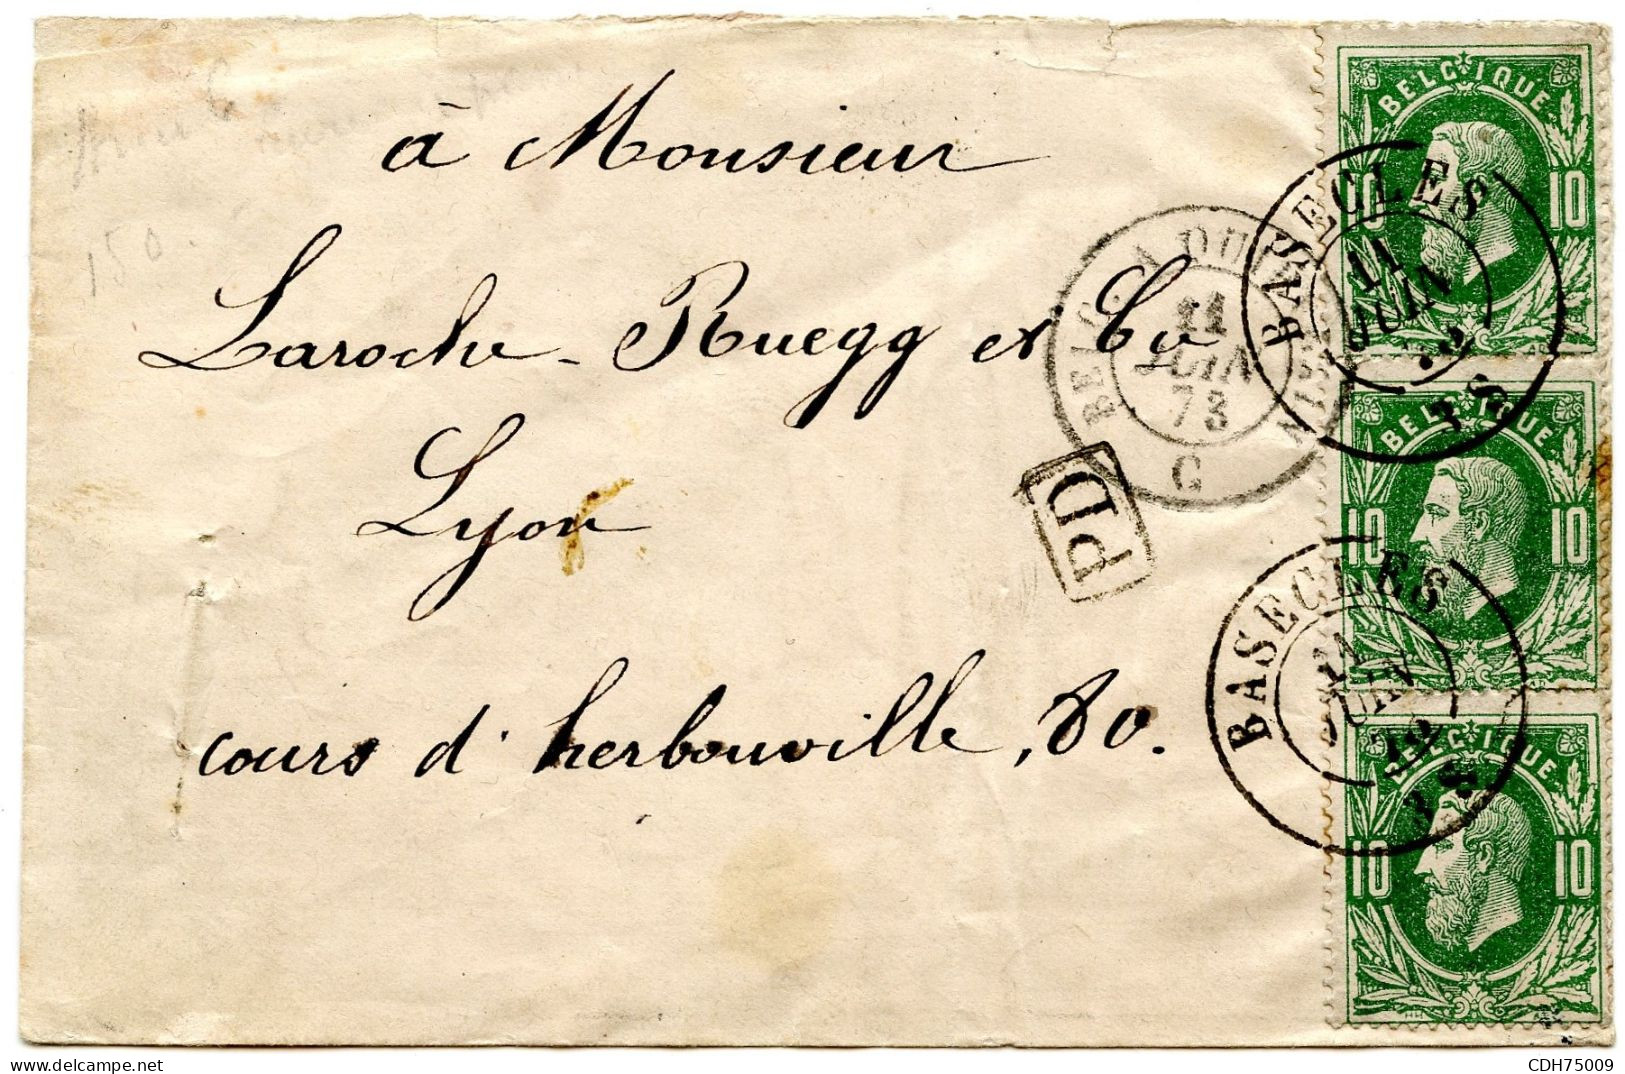 à Monsieur
Laroche - Ruegg et Cie
Lyon
cours d'herbouville, 80.
150.
PD
BELG. A QUI
11
JUIN
73
G
BASECLES
11
JUIN
3 S
BASECLES
11
JUIN
3 S
BELGIQUE
10 10
BELGIQUE
10 10
BELGIQUE
10 10
delcampe.net
CDH75009